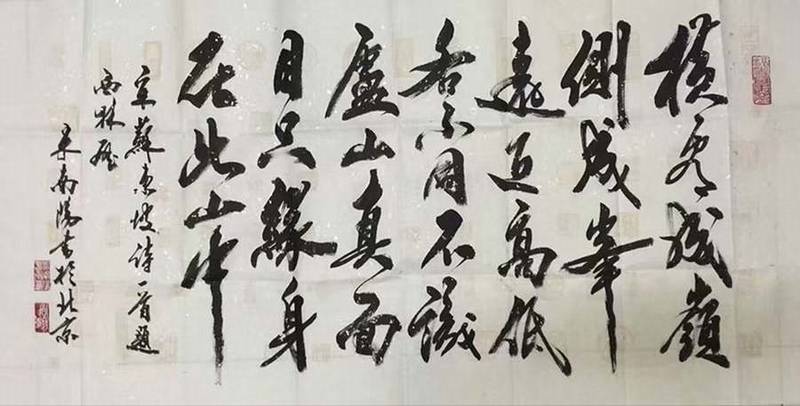 橫看成嶺
側成峯
遠近高低
各不同不識
盧山真面
目只緣身
在此山中
宋蘇東坡詩一首題
西林壁
米南陽書於北京